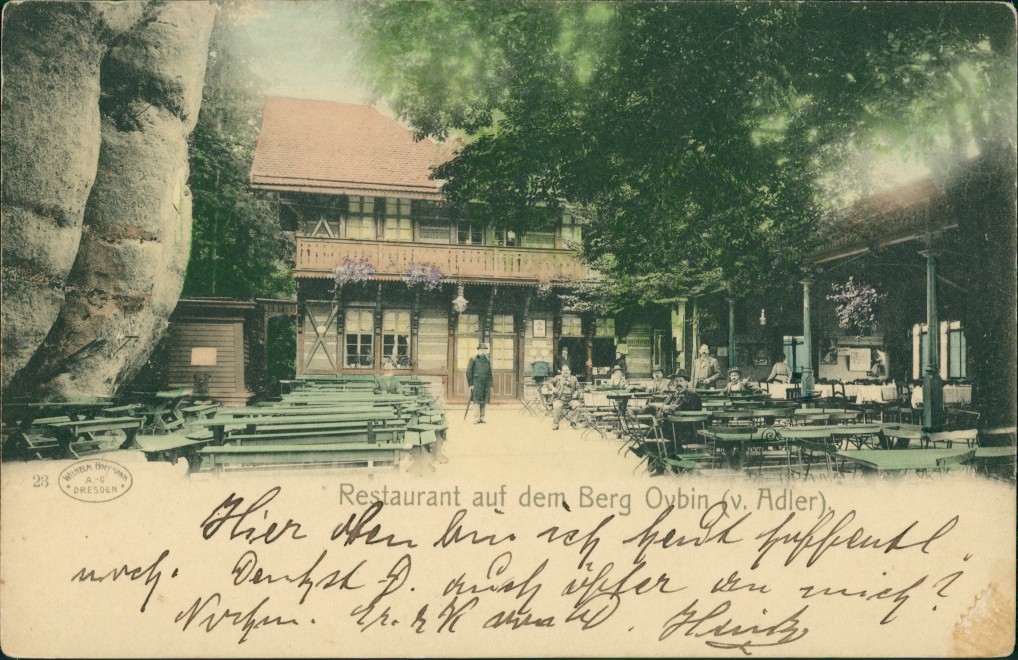 23
WILHELM HOFFMANN
A.-G.
DRESDEN
Restaurant auf dem Berg Oybin (v. Adler).
Hier oben bin ich heut hoffentl.
noch. Denkst D. auch öfter an mich?
Nochm. Gr. & K